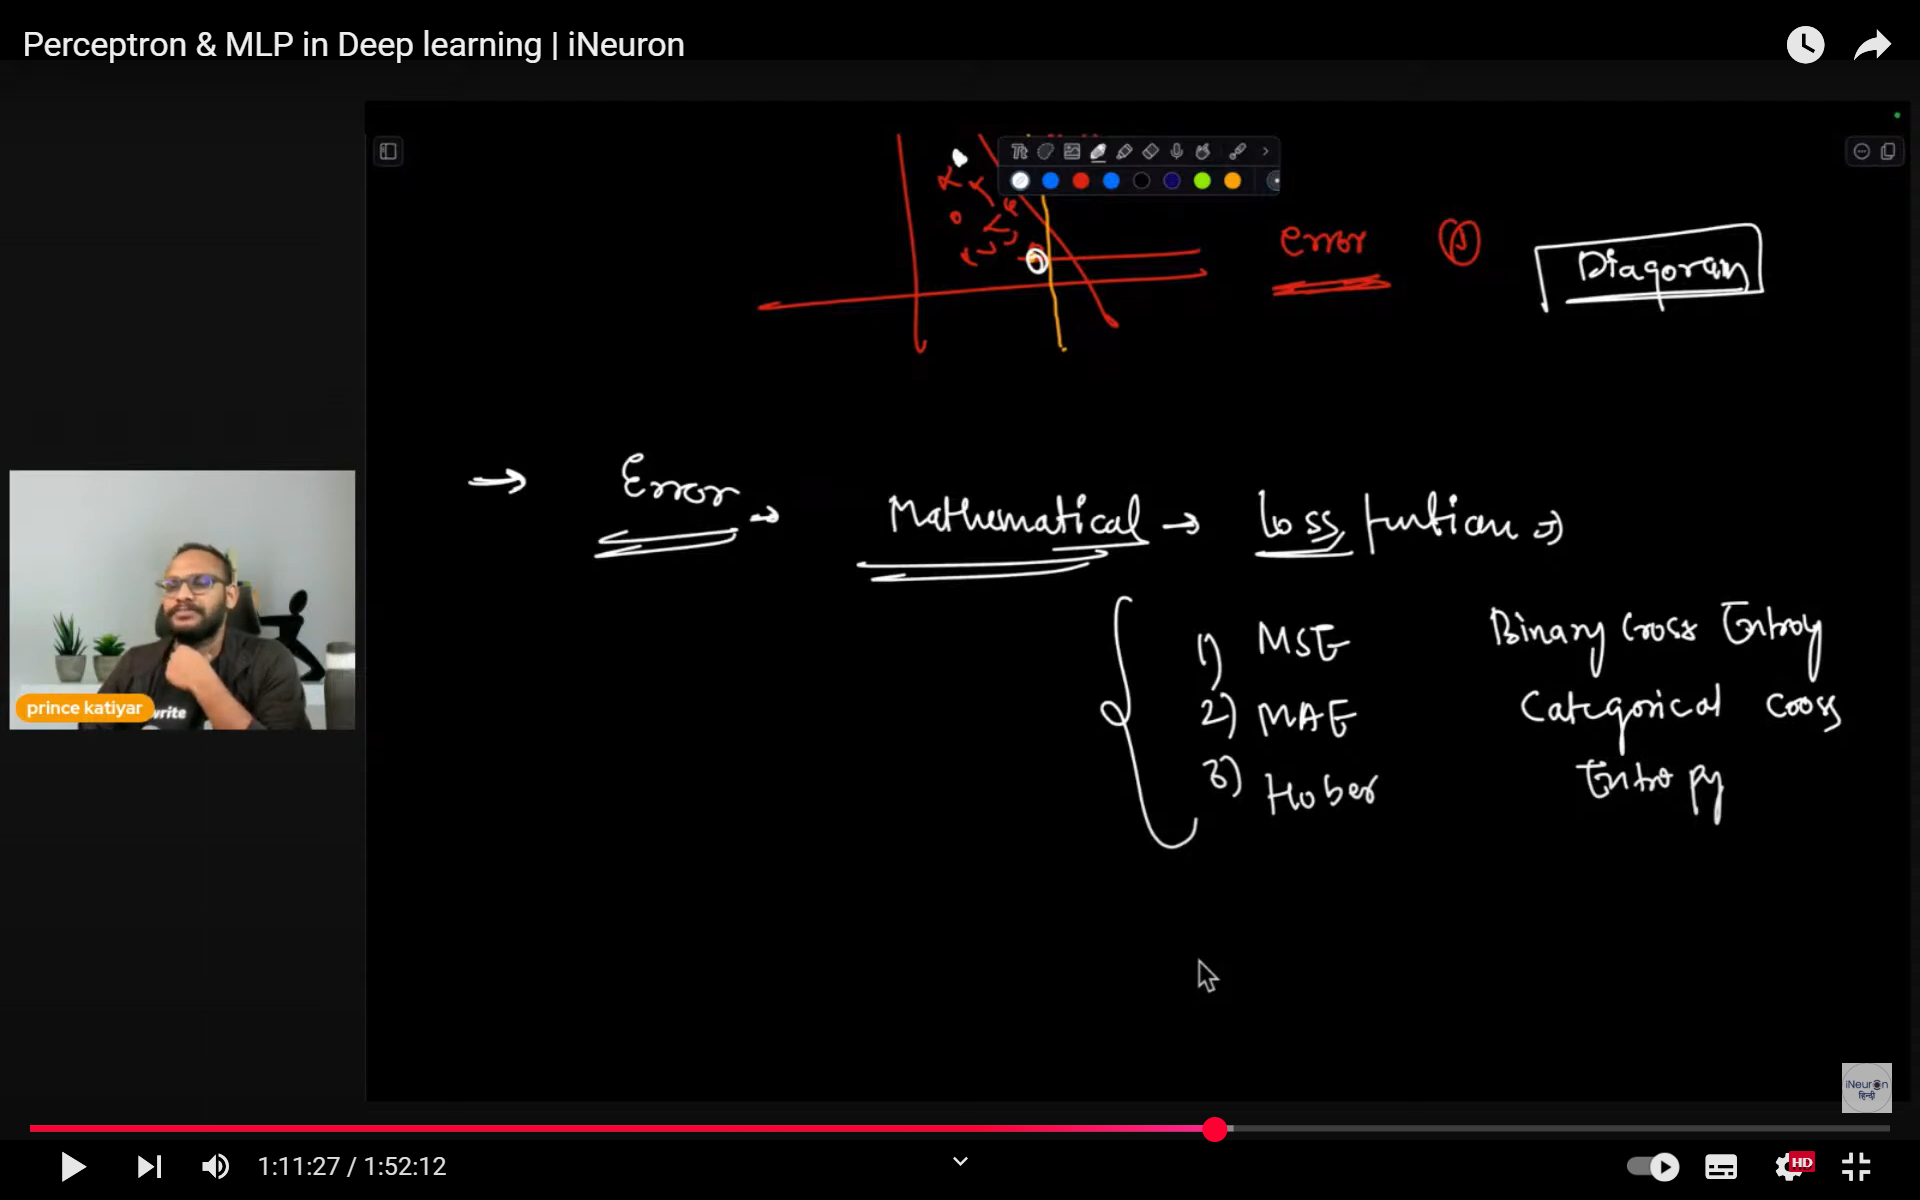 Perceptron & MLP in Deep learning | iNeuron
Error 1
Diagoram
→ Error → Mathematical → loss funtion →
1) MSE
2) MAE
3) Hober
Binary Cross Entroy
Categorical Cooss
Entropy
prince katiyar
write
iNeuron
हिन्दी
1:11:27 / 1:52:12
HD